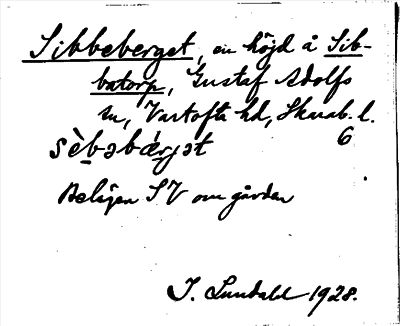 Sibbeberget, en höjd å Sib-
batorp, Gustaf Adolfs
sn, Vartofta hd, Skarab. l.
6
sèbəbær̨ət
Belägen SV om gården
I. Lundahl 1928.